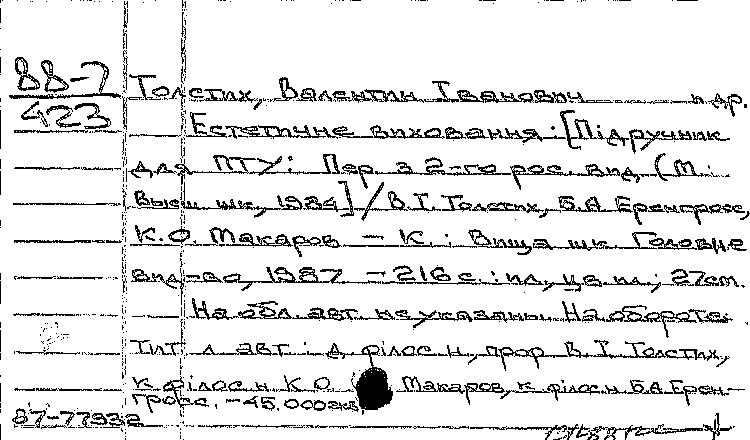 88-7
423
Толстих, Валентин Іванович и др.
Естетичне виховання: [Підручник
для ПТУ: Пер. з 2-го рос. вид. (М.:
Высш. шк., 1984] / В.І. Толстих, Б.А. Еренгросс,
К.О. Макаров — К.: Вища шк. Головне
вид-во, 1987. — 216 с.: ил., цв. ил.; 27 см.
На обл. авт. не указаны. На обороте
тит. л. авт.: д. філос. н., проф. В.І. Толстих,
к. філос. н. К.О. Макаров, к. філос. н. Б.А. Ерен-
гросс. — 45.000 экз.
87-77932